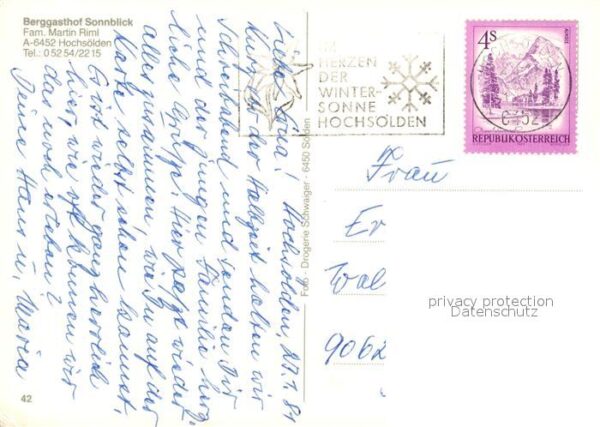 Berggasthof Sonnblick
Fam. Martin Riml
A-6452 Hochsölden
Tel.: 0 52 54/22 15
IM
HERZEN
DER
WINTER-
SONNE
HOCHSÖLDEN
4S
REPUBLIK ÖSTERREICH
6452
Foto · Drogerie Schwaiger · 6450 Sölden
Hochsölden, 27.1.81
Liebe
Nach der Halbzeit halten wir
und senden Dir
und der jungen Familie herz-
liche Grüße. Hier paßt wieder
alles zusammen, wie Du auf der
Karte selbst sehen kannst.
Es ist wieder ganz herrlich
hier, wie oft können wir
das noch erleben?
Deine Hans u. Maria
Frau
Er
Wal
9062
privacy protection
Datenschutz
42